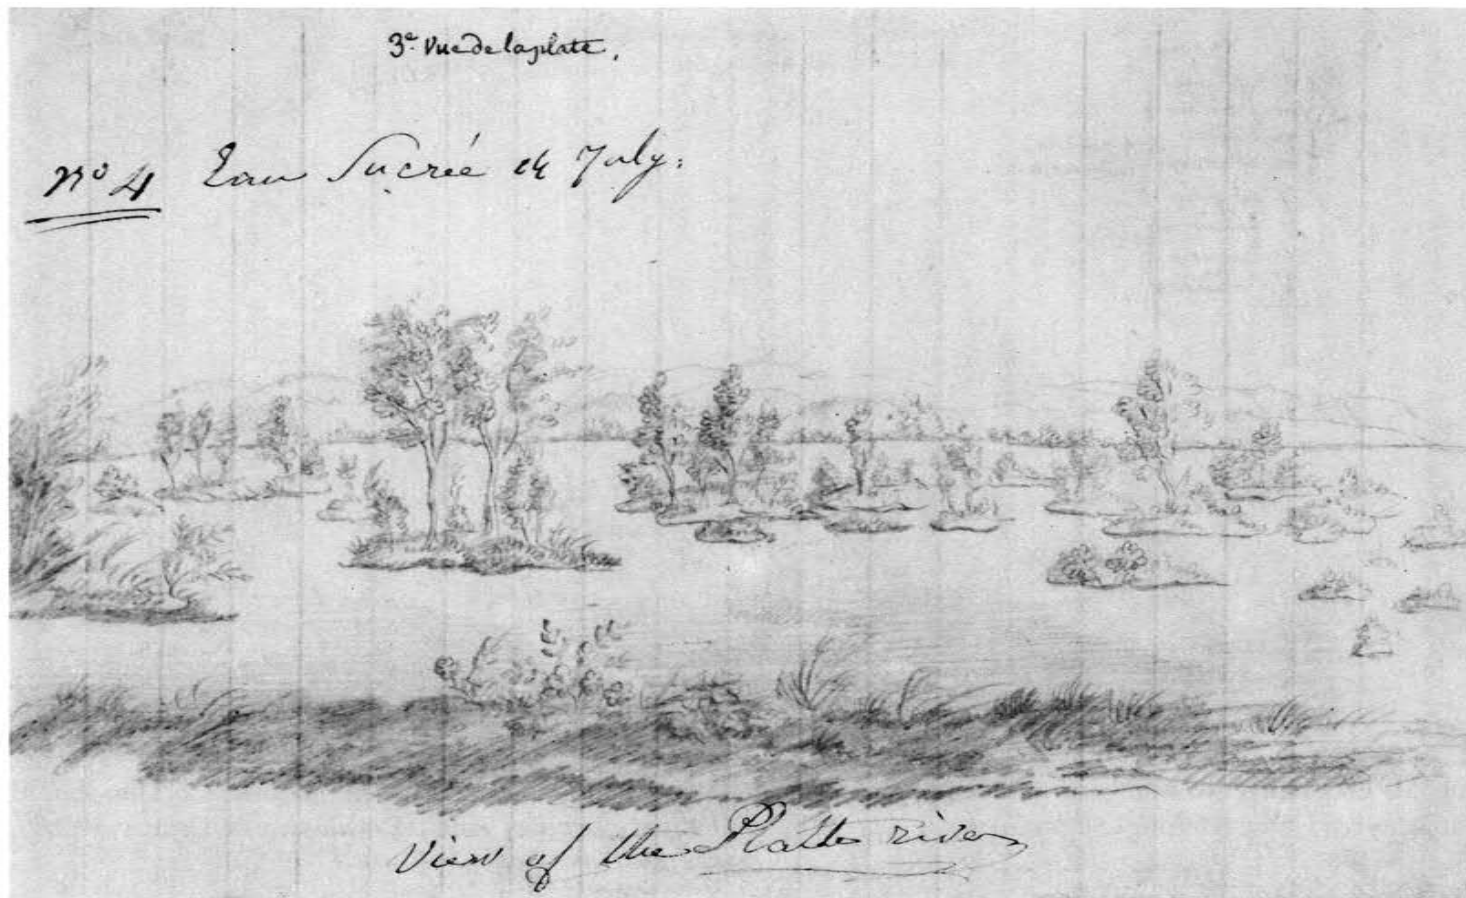 3e Vue de la plate.
no 4 Eau Sucrée July.
View of the Platte river